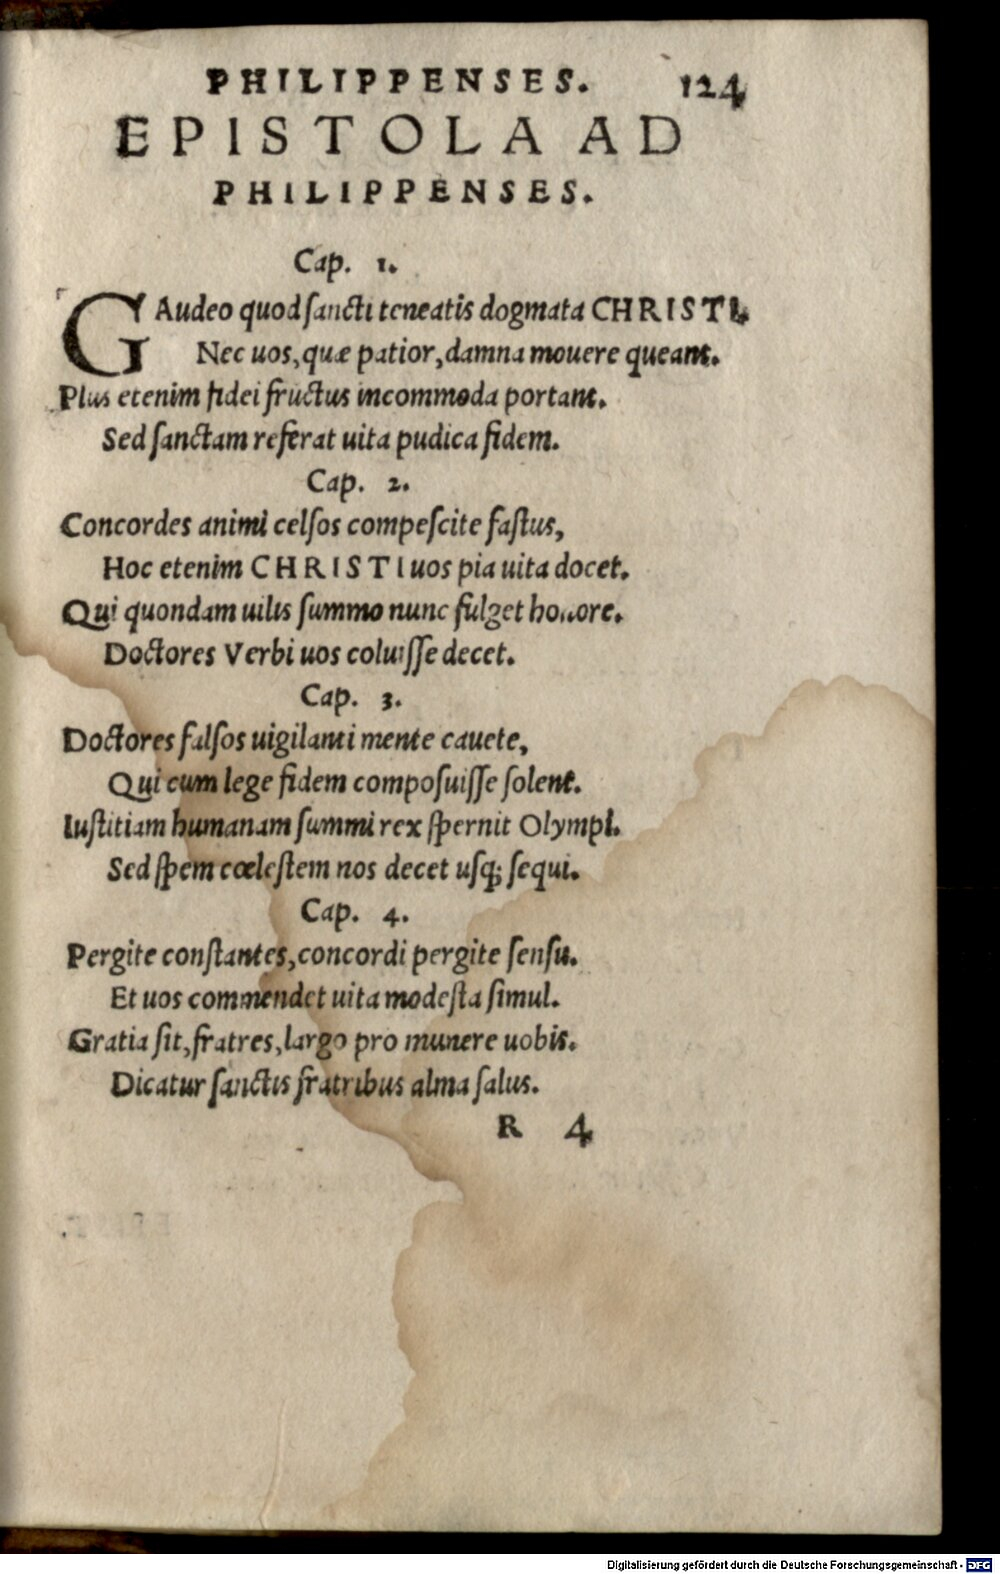 PHILIPPENSES. 124
EPISTOLA AD
PHILIPPENSES.
Cap. 1.
GAudeo quod sancti teneatis dogmata CHRISTI,
Nec uos, quæ patior, damna mouere queant.
Plus etenim fidei fructus incommoda portant.
Sed sanctam referat uita pudica fidem.
Cap. 2.
Concordes animi celsos compescite fastus,
Hoc etenim CHRISTI uos pia uita docet.
Qui quondam uilis summo nunc fulget honore.
Doctores Verbi uos coluisse decet.
Cap. 3.
Doctores falsos uigilanti mente cauete,
Qui cum lege fidem composuisse solent.
Iustitiam humanam summi rex spernit Olympi.
Sed spem cœlestem nos decet usq; sequi.
Cap. 4.
Pergite constantes, concordi pergite sensu.
Et uos commendet uita modesta simul.
Gratia sit, fratres, largo pro munere uobis.
Dicatur sanctis fratribus alma salus.
R 4
Digitalisierung gefördert durch die Deutsche Forschungsgemeinschaft - DFG